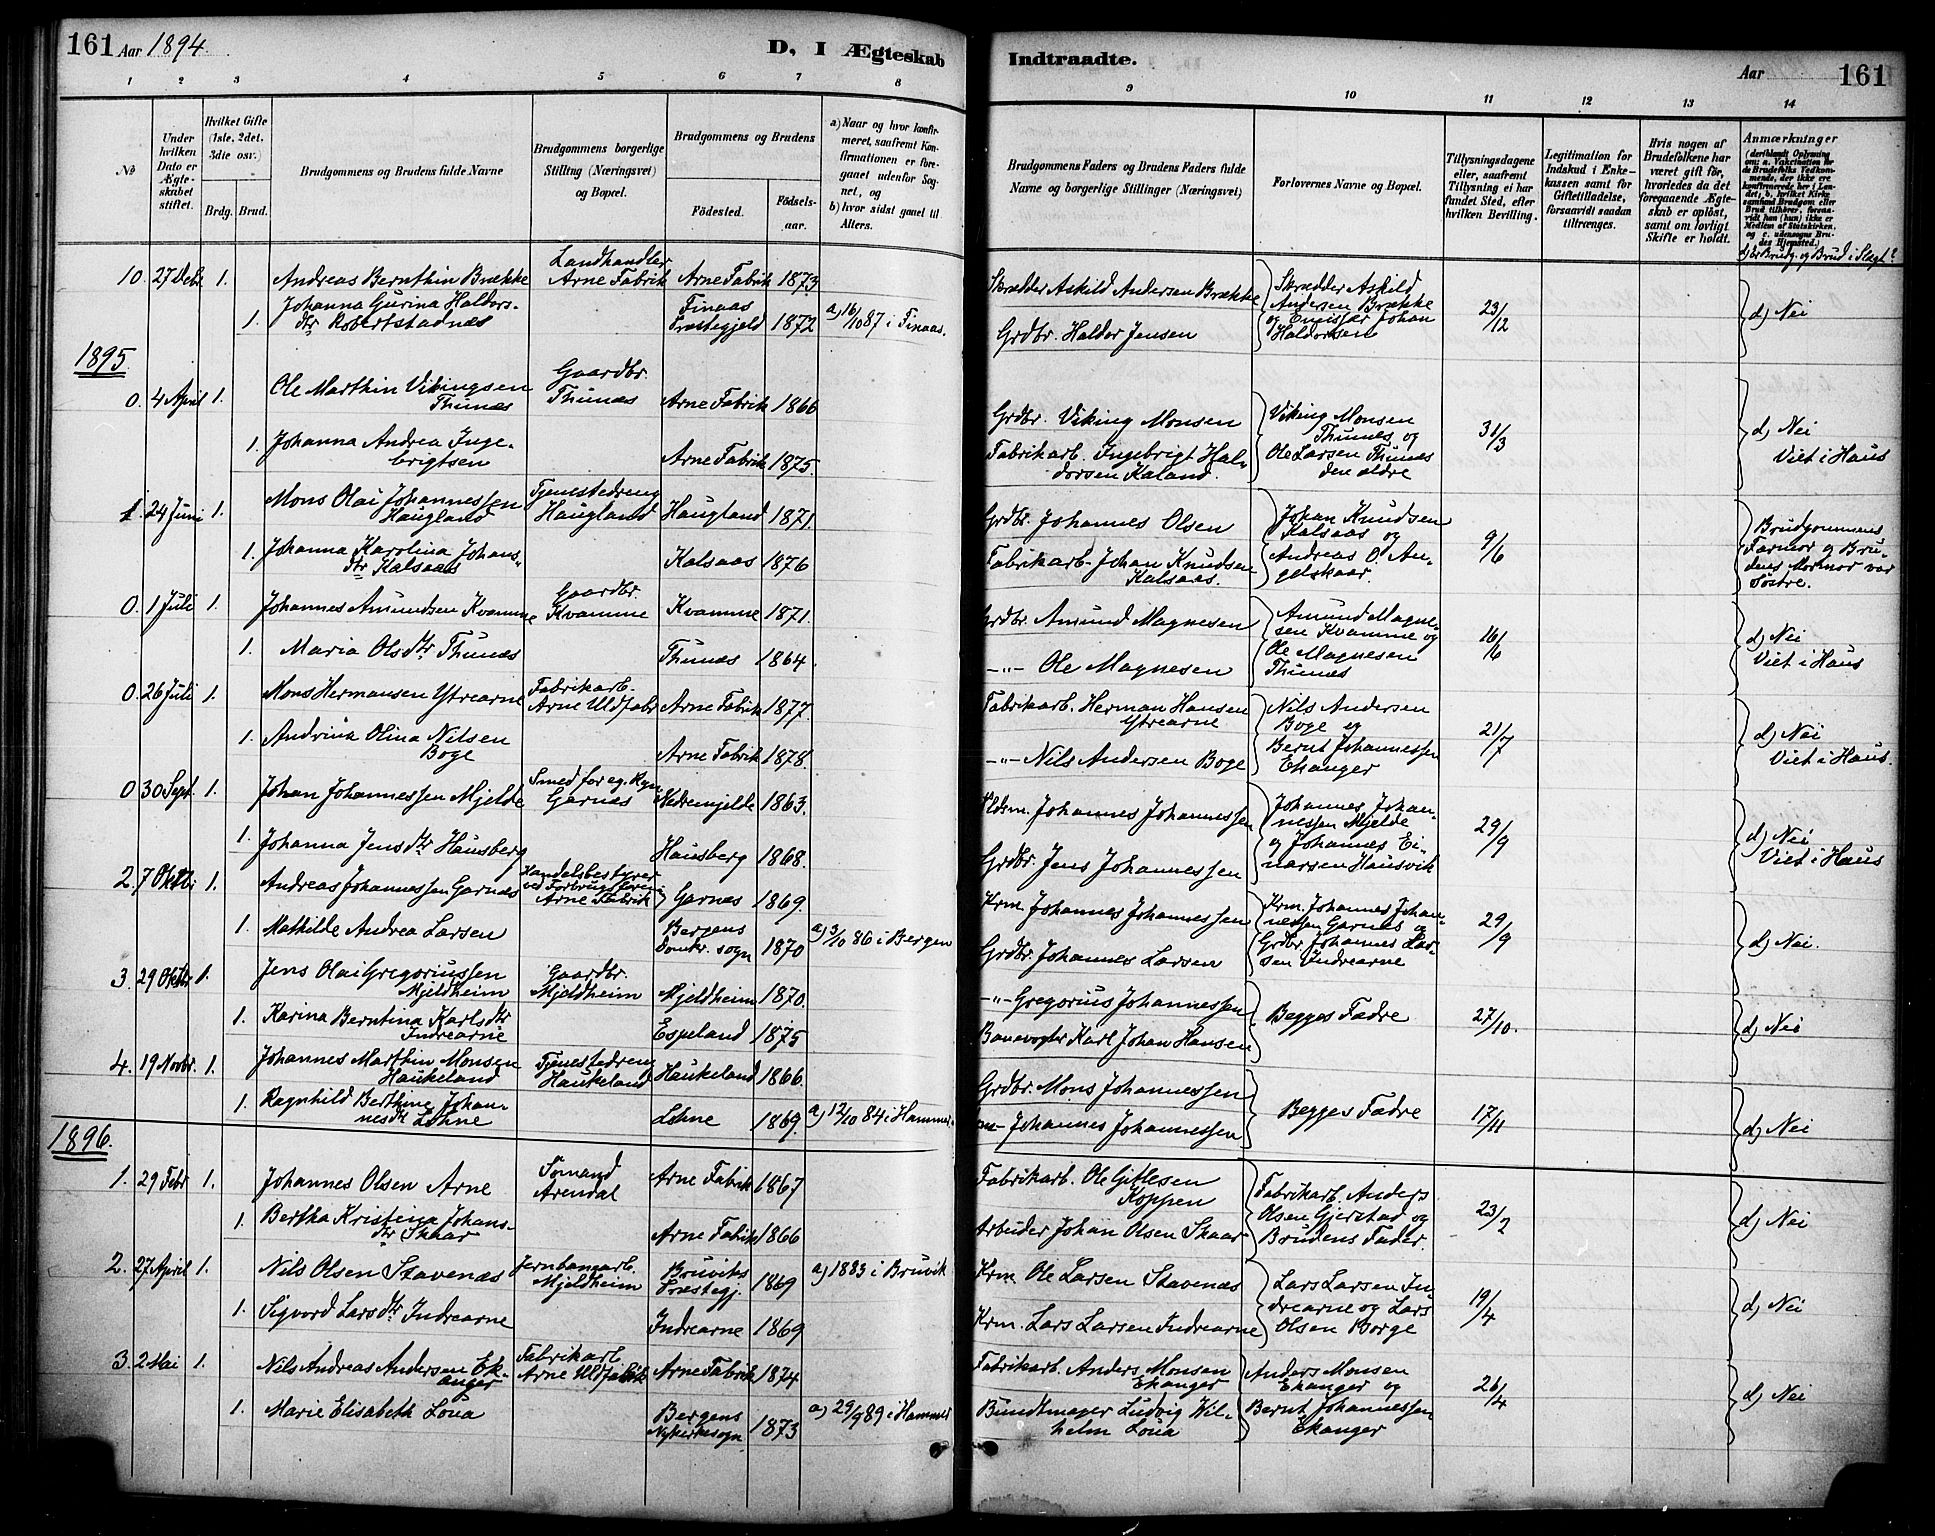 161 Aar 1894. D, I Ægteskab
1 2 3 4 5 6 7 8
No
Under hvilken Dato er Ægteskabet stiftet.
Hvilket Gifte (1ste, 2det, 3die osv.)
Brdg. Brud.
Brudgommens og Brudens fulde Navne
Brudgommens borgerlige Stilling (Næringsvei) og Bopæl.
Brudgommens og Brudens
Fødested. Fødselsaar.
a) Naar og hvor konfirmeret, saafremt Konfirmationen er foregaaet udenfor Sognet, og
b) hvor sidst gaaet til Alters.
10. 27 Debr. 1. Andreas Bernthin Brække Landhandler Arne Fabrik Arne Fabrik 1873.
1. Johanna Gurina Haldorsdtr Robertstadnæs Finaas Præstegjeld 1872 a) 16/10 87 i Finaas.
1895.
0. 4 April 1. Ole Marthin Vikingsen Thunæs Gaardbr. Thunæs Arne Fabrik 1866
1. Johanna Andrea Ingebrigtsen Arne Fabrik 1875.
1. 24 Juni 1. Mons Olai Johannessen Haugland Tjenestedreng Haugland Haugland 1871.
1. Johanna Karolina Johansdtr Kalsaas Kalsaas 1876
0. 1 Juli 1. Johannes Amundsen Kvamme Gaardbr. Kvamme Kvamme 1871.
1. Maria Olsdtr Thunæs Thunæs 1864
0. 26 Juli 1. Mons Hermansen Ytrearne Fabrikarb. Arne Uldfabr. Arne Fabrik 1877.
1. Andrina Olina Nilsen Boge Arne Fabrik 1878.
0 30 Sept. 1. Johan Johannessen Mjelde Smed for eg. Regn. Garnæs Nedremjelde 1863.
1. Johanna Jensdtr Hausberg Hausberg 1868.
2. 7 Oktbr 1. Andreas Johannessen Garnæs Handelsbestyrer ved Forbrugsforen. Arne Fabrik Garnæs 1869.
1. Mathilde Andrea Larsen Bergens Domk. sogn 1870 a) 3/10 86 i Bergen
3. 29 Oktbr 1. Jens Olai Gregoriussen Mjeldheim Gaardbr. Mjeldheim Mjeldheim 1870.
1. Karina Berntina Karlsdtr Indrearne Espeland 1875
4. 19 Novbr. 1. Johannes Marthin Monsen Haukeland Tjenestedreng Haukeland Haukeland 1866.
1. Ragnhild Berthine Johannesdtr Lohne Lohne 1869. a) 12/10 84 i Hammer.
1896.
1. 29 Febr 1. Johannes Olsen Arne Sømand Arendal Arne Fabrik 1867
1. Bertha Kristina Johansdtr Skaar Arne Fabrik 1866
2. 27 April 1. Nils Olsen Stavenæs Jernbanearb. Mjeldheim Bruviks Præstegj. 1869 a) 1883 i Bruvik
1. Sigvord Larsdtr Indrearne Indrearne 1869
3. 2 Mai 1. Nils Andreas Andersen Ekanger Fabrikarb. Arne Uldfabrik Arne Fabrik 1874
1. Marie Elisabeth Loua Bergens Nykirkesogn. 1873 a) 29/9 89 i Hammer
Indtraadte. Aar 161
9 10 11 12 13 14
Brudgommens Faders og Brudens Faders fulde Navne og borgerlige Stillinger (Næringsvei)
Forlovernes Navne og Bopæl.
Tillysningsdagene eller, saafremt Tillysning ei har fundet Sted, efter hvilken Bevilling.
Legitimation for Indskud i Enkekassen samt for Giftetilladelse, forsaavidt saadan tiltrænges.
Hvis nogen af Brudefolkene har været gift før, hvorledes da det foregaaende Ægteskab er opløst, samt om lovligt Skifte er holdt.
Anmærkninger (deriblandt Oplysning om: a. Vaccination for de Brudefolks Vedkommende, der ikke ere konfirmerede her i Landet; b. hvilket Kirkesamfund Brudgom eller Brud tilhører, forsaavidt han (hun) ikke er Medlem af Statskirken, og c. udensogns Brudes Hjemsted.
d) Er Brudg. og Brud i Slægt?
Skrædder Askild Andersen Brække Skrædder Askild Andersen Brække og Johan Haldorsen 23/12 d) Nei
Grdbr. Haldor Jensen
Grdbr. Viking Monsen Viking Monsen Thunes og Ole Larsen Thunæs den ældre 31/3 d) Nei Viet i Haus
Fabrikarb. Ingebrigt Haldorsen Kaland.
Grdbr. Johannes Olsen Johan Knudsen Kalsaas og Andreas O. Angelskaar. 9/6 Brudgommens Farmor og Brudens Mormor var Søstre.
Fabrikarb. Johan Knudsen Kalsaas.
Grdbr. Amund Magnesen Amund Magnesen Kvamme og Ole Magnesen Thunæs 16/6 d) Nei Viet i Haus
-"- Ole Magnesen
Fabrikarb. Herman Hansen Ytrearne Nils Andersen Boge og Bernt Johannessen Ekanger 21/7 d) Nei Viet i Haus.
-"- Nils Andersen Boge
Johannes Johannessen Johannes Johannessen Mjelde og Johannes Einarsen Hausvik 29/9 d) Nei Viet i Haus
Grdbr. Jens Johannessen
Krm. Johannes Johannessen Krm. Johannes Johannessen Garnes og Grdbr. Johannes Larsen Indrearne 29/9 d) Nei.
Grdbr. Johannes Larsen
-"- Gregorius Johannessen Begges Fædre 27/10. d) Nei
Banevogter Karl Johan Hansen
Grdbr. Mons Johannessen Begges Fædre 17/11 d) Nei
Johannes Johannessen
Fabrikarb. Ole Gitlesen Koppen Fabrikarb. Anders Olsen Gjerstad og Brudens Fader. 23/2 d) Nei
Arbeider Johan Olsen Skaar
Krm. Ole Larsen Stavenæs Lars Larsen Indrearne og Lars Olsen Borge 19/4 d) Nei
Krm. Lars Larsen Indrearne
Fabrikarb. Anders Monsen Ekanger Anders Monsen Ekanger og Bernt Johannessen Ekanger 26/4 d) Nei
Bundtmager Ludvig Wilhelm Loua